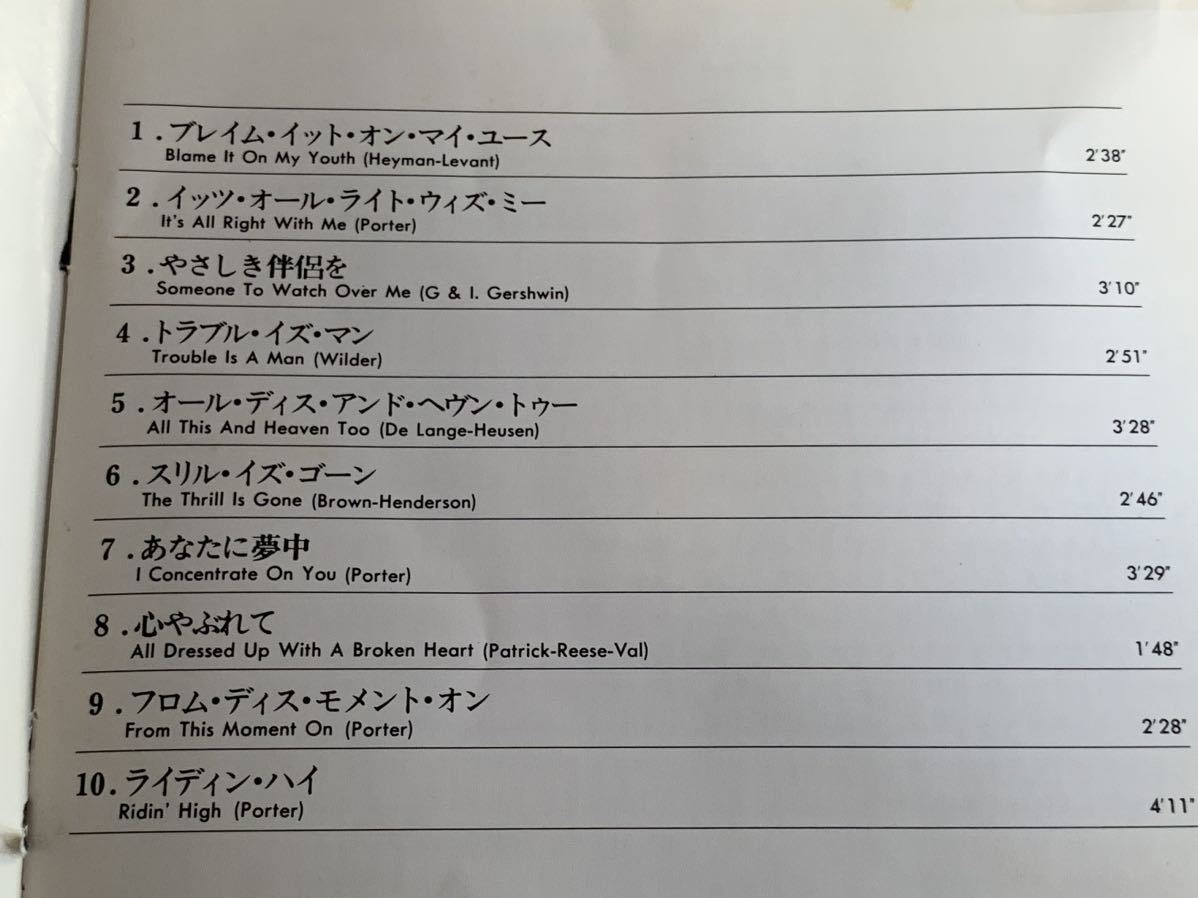 1.ブレイム・イット・オン・マイ・ユース
Blame It On My Youth (Heyman-Levant) 2'38"
2.イッツ・オール・ライト・ウィズ・ミー
It's All Right With Me (Porter) 2'27"
3.やさしき伴侶を
Someone To Watch Over Me (G & I. Gershwin) 3'10"
4.トラブル・イズ・マン
Trouble Is A Man (Wilder) 2'51"
5.オール・ディス・アンド・ヘヴン・トゥー
All This And Heaven Too (De Lange-Heusen) 3'28"
6.スリル・イズ・ゴーン
The Thrill Is Gone (Brown-Henderson) 2'46"
7.あなたに夢中
I Concentrate On You (Porter) 3'29"
8.心やぶれて
All Dressed Up With A Broken Heart (Patrick-Reese-Val) 1'48"
9.フロム・ディス・モメント・オン
From This Moment On (Porter) 2'28"
10.ライディン・ハイ
Ridin' High (Porter) 4'11"